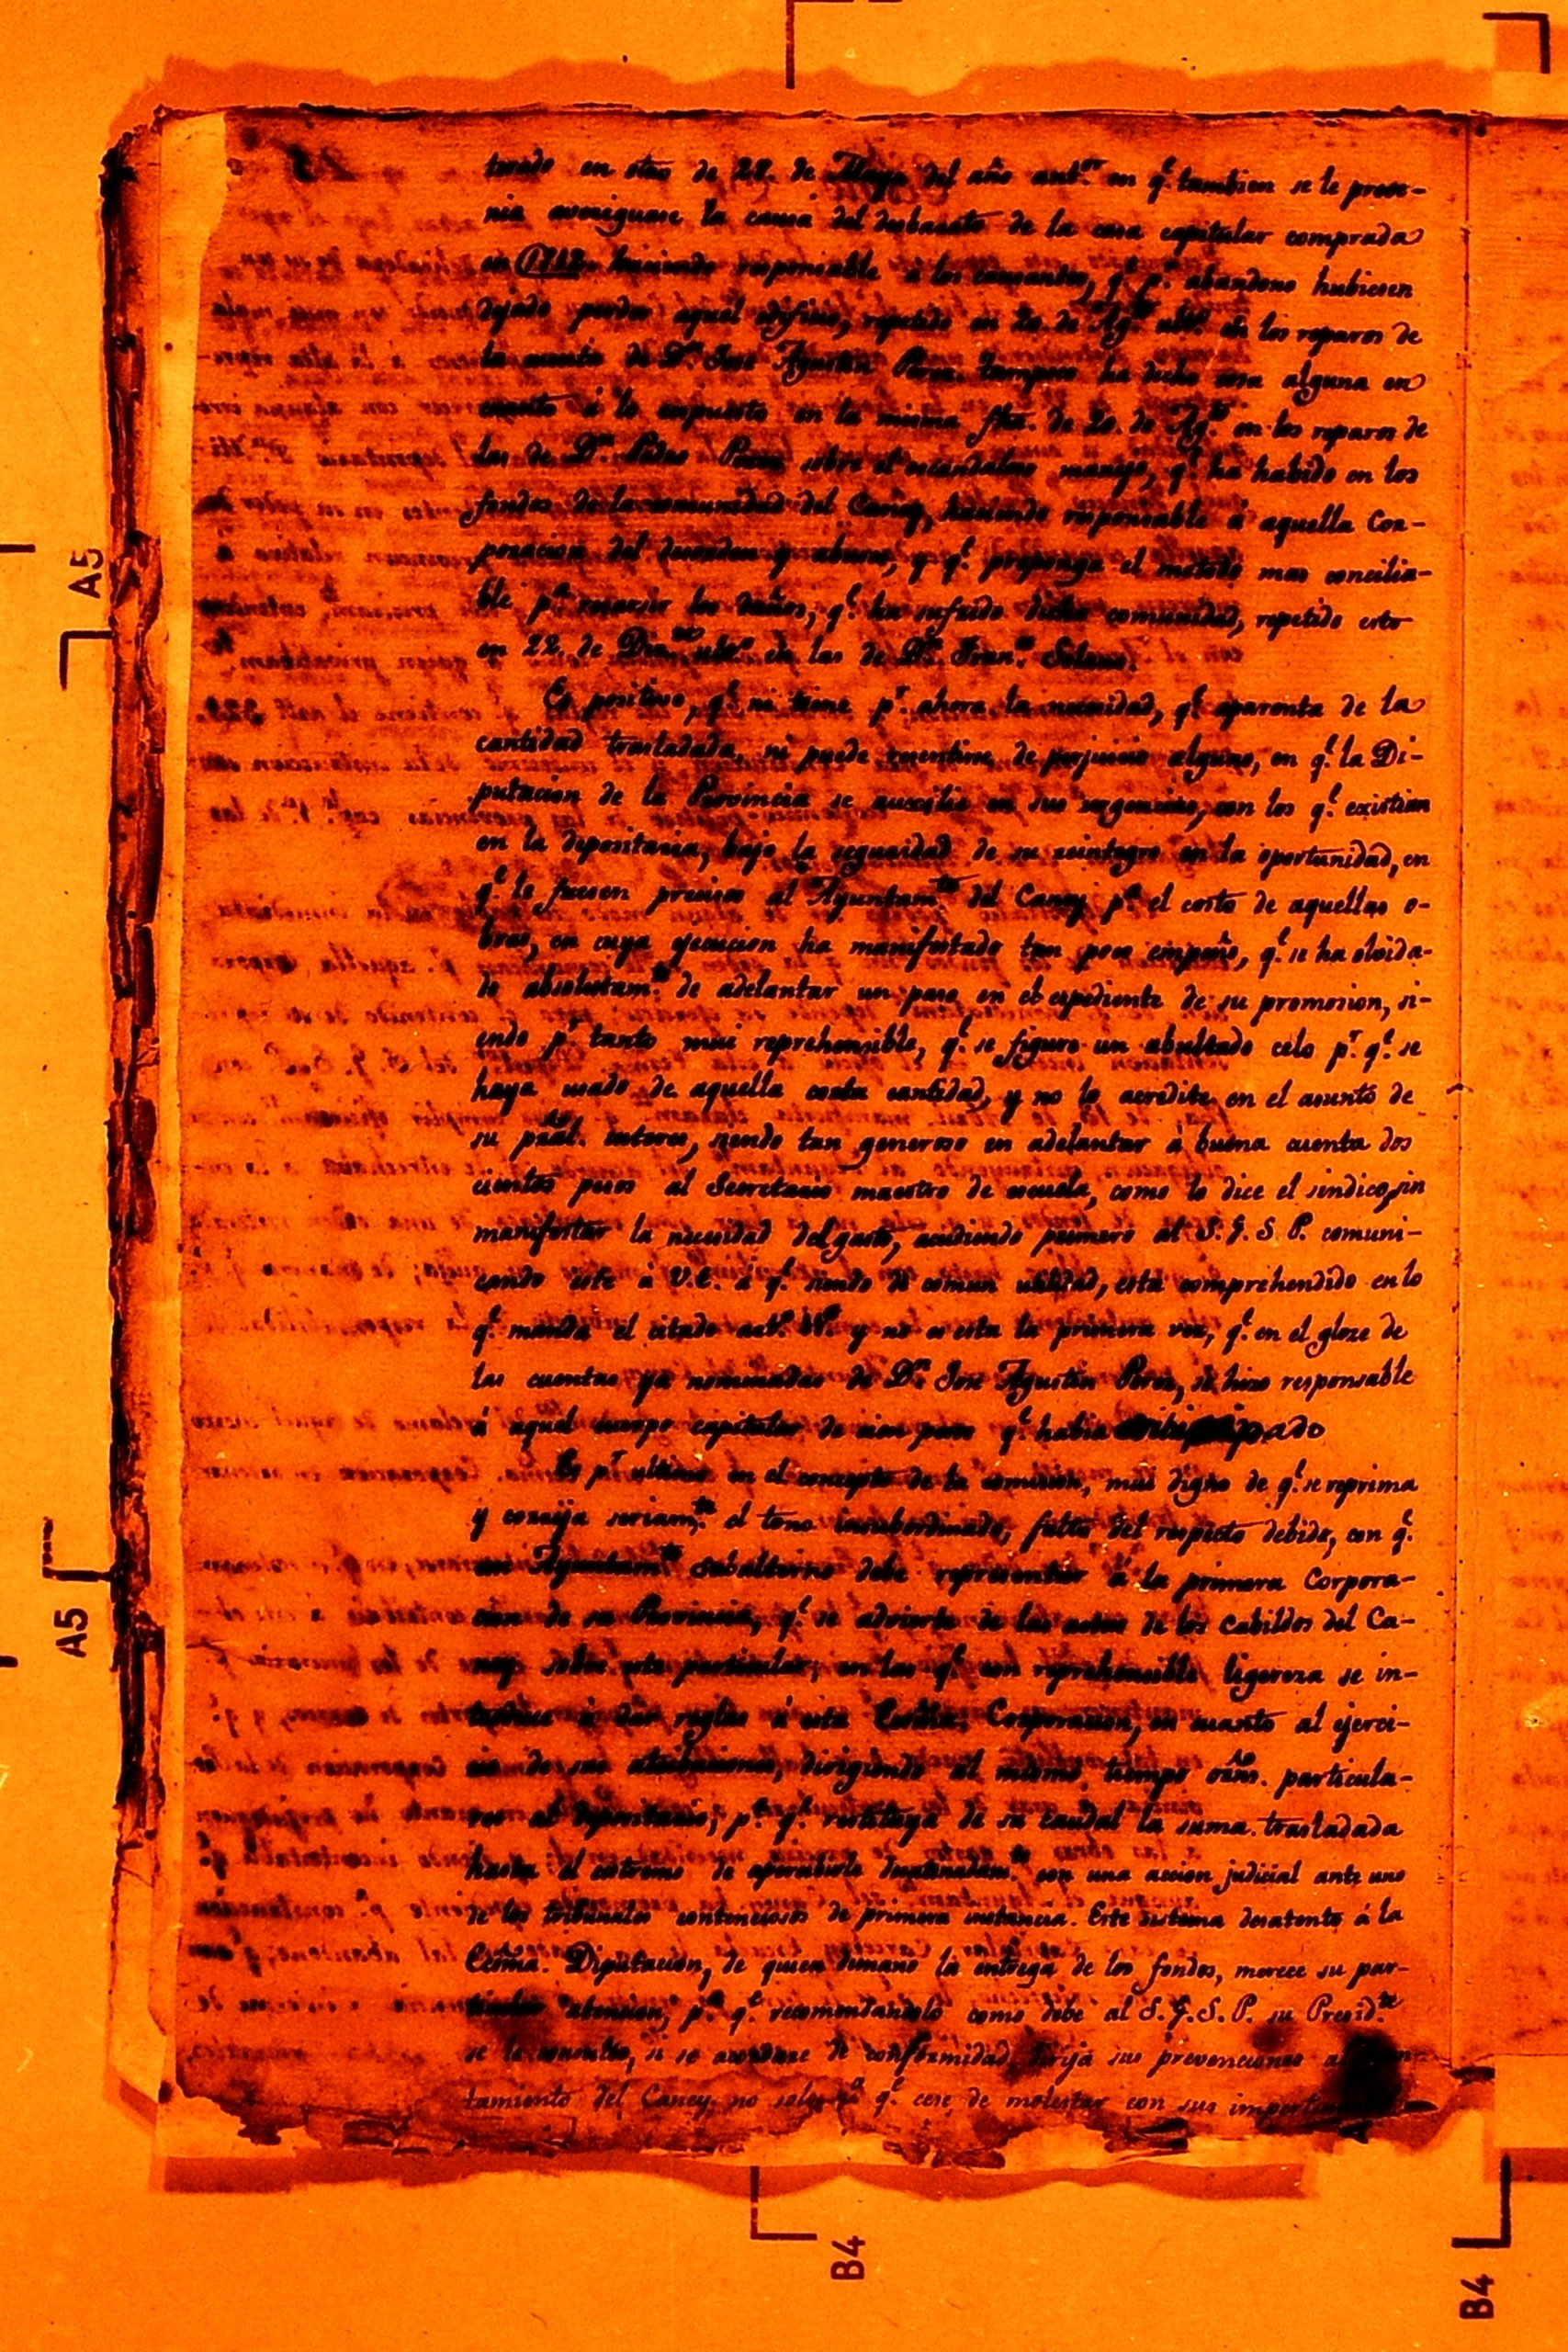 terado en otro de 28. de Mayo del año ant.or en q.e tambien se le preve-
nia averiguase la causa del desbarato de la casa capitular comprada
en 1787. haciendo responsable á los causantes, q.e p.r abandono hubiesen
dejado perder aquel edificio, repetido en 20. de Ag.to ult.o en los reparos de
la cuenta de D.n José Agustin Perez. Tampoco ha dicho cosa alguna en
cuanto á lo expuesto en la misma fha. de 20. de Ag.to en los reparos de
las de D.n Pedro Perez sobre el escandaloso manejo, q.e ha habido en los
fondos de la comunidad del Caney, haciendo responsable á aquella Cor-
poracion del desorden y abusos, y q.e proponga el metodo mas concilia-
ble p.a resarcir los daños, q.e ha sufrido dicha comunidad, repetido esto
en 22. de Diz.e ult.o en las de D.n Fran.co Solano.
Es positivo, q.e ni tiene p.r ahora la necesidad, q.e aparenta de la
cantidad trasladada, ni puede resentirse de perjuicio alguno, en q.e la Di-
putacion de la Provincia se auxilie en sus urgencias, con los q.e existian
en la depositaria, bajo la seguridad de su reintegro en la oportunidad, en
q.e le fuesen precisos al Ayuntam.to del Caney p.a el costo de aquellas o-
bras, en cuya ejecucion ha manifestado tan poco empeño, q.e se ha olvida-
do absolutam.te de adelantar un paso en el espediente de su promosion, si-
endo p.r tanto mui reprehensible, q.e se figure un abultado celo p.r q.e se
haya usado de aquella corta cantidad, y no lo acredite en el asunto de
su pral. interes, siendo tan generoso en adelantar á buena cuenta dos
cientos pesos al Secretario maestro de escuela, como lo dice el sindico, sin
manifestar la necesidad del gasto, acudiendo primero al S. G. S. P. comuni-
cando este á V.E. á q.e siendo de comun utilidad, está comprehendido en lo
q.e manda el citado art.o y no es esta la primera vez, q.e en el gloze de
las cuentas ya nominadas de D.n José Agustin Perez, se hizo responsable
á aquel cuerpo capitular de cien pesos q.e habia
Es p.r ultimo en el concepto de la comision, mui digno de q.e se reprima
y corrija seriam.te el tono insubordinado, falto del respeto debido, con q.e
un Ayuntam.to subalterno debe representar á la primera Corpora-
cion de su Provincia, q.e se advierte de las actas de los Cabildos del Ca-
ney sobre este particular, en las q.e con reprehensible ligereza se in-
troduce á dar reglas á esta Exma. Corporacion, en cuanto al ejerci-
cio de sus atribuciones, dirigiendo al mismo tiempo orns. particula-
res al depositario, p.a q.e restituya de su caudal la suma trasladada
hasta el estremo de apercibirle con una accion judicial ante uno
de los tribunales contenciosos de primera instancia. Este sistema desatento á la
Exma. Diputacion, de quien dimanó la entrega de los fondos, merece su par-
ticular atencion, p.a q.e recomendandolo como debe al S. G. S. P. su Presid.te
se le consulte, si se acordare de conformidad, dirija sus prevenciones
tamiento del Caney, no solo p.a q.e cese, de molestar con sus
A5
A5
B4
B4